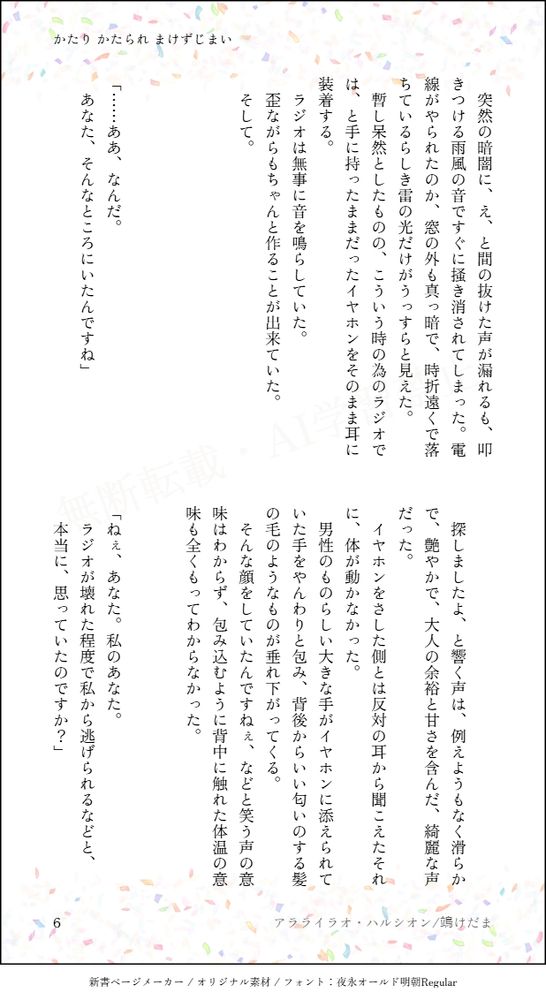 かたり かたられ まけずじまい
　突然の暗闇に、え、と間の抜けた声が漏れるも、叩
きつける雨風の音ですぐに掻き消されてしまった。電
線がやられたのか、窓の外も真っ暗で、時折遠くで落
ちているらしき雷の光だけがうっすらと見えた。
　暫し呆然としたものの、こういう時の為のラジオで
は、と手に持ったままだったイヤホンをそのまま耳に
装着する。
　ラジオは無事に音を鳴らしていた。
　歪ながらもちゃんと作ることが出来ていた。
　そして。
「……ああ、なんだ。
　あなた、そんなところにいたんですね」
　探しましたよ、と響く声は、例えようもなく滑らか
で、艶やかで、大人の余裕と甘さを含んだ、綺麗な声
だった。
　イヤホンをさした側とは反対の耳から聞こえたそれ
に、体が動かなかった。
　男性のものらしい大きな手がイヤホンに添えられて
いた手をやんわりと包み、背後からいい匂いのする髪
の毛のようなものが垂れ下がってくる。
　そんな顔をしていたんですねぇ、などと笑う声の意
味はわからず、包み込むように背中に触れた体温の意
味も全くもってわからなかった。
「ねぇ、あなた。私のあなた。
　ラジオが壊れた程度で私から逃げられるなどと、
　本当に、思っていたのですか？」
無断転載・AI学
6
アラライラオ・ハルシオン/鴗けだま
新書ページメーカー / オリジナル素材 / フォント：夜永オールド明朝Regular